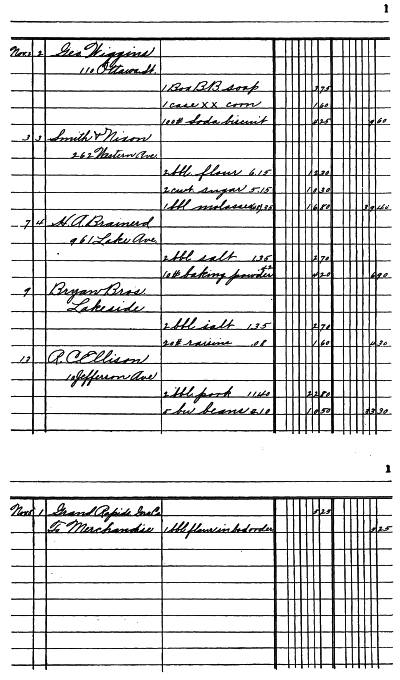 1
Nov. 2 2 Geo Wiggins
110 Ottawa St.
1 Box B B soap 3 75
1 case XX corn 1 60
100# Soda biscuit 4 25 9 60
3 3 Smith & Nixon
262 Western Ave.
2 bbl flour 6.15 12 30
2 cwt sugar 5.15 10 30
1 bbl molasses 16 80 39 40
7 4 H. A. Brainerd
961 Lake Ave.
2 bbl salt 1.35 2 70
10# baking powder 42 4 20 6 90
9 Bryan Bros.
Lakeside
2 bbl salt 1.35 2 70
20# raisins .08 1 60 4 30
12 R. C. Ellison
10 Jefferson Ave
2 bbl pork 11.40 22 80
5 bu beans 2.10 10 50 33 30
1
Nov. 1 Grand Rapids Ins Co. 5 25
To Merchandise 1 bbl flour in bad order 5 25